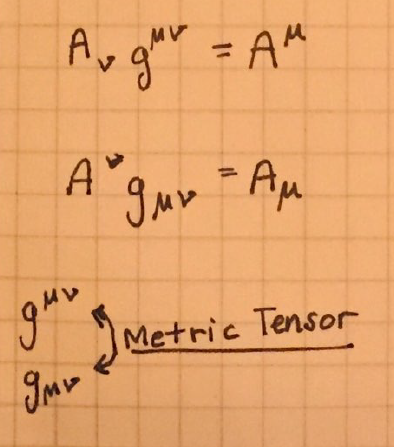 A_ν g^{μν} = A^μ
A^ν g_{μν} = A_μ
g^{μν}
Metric Tensor
g_{μν}